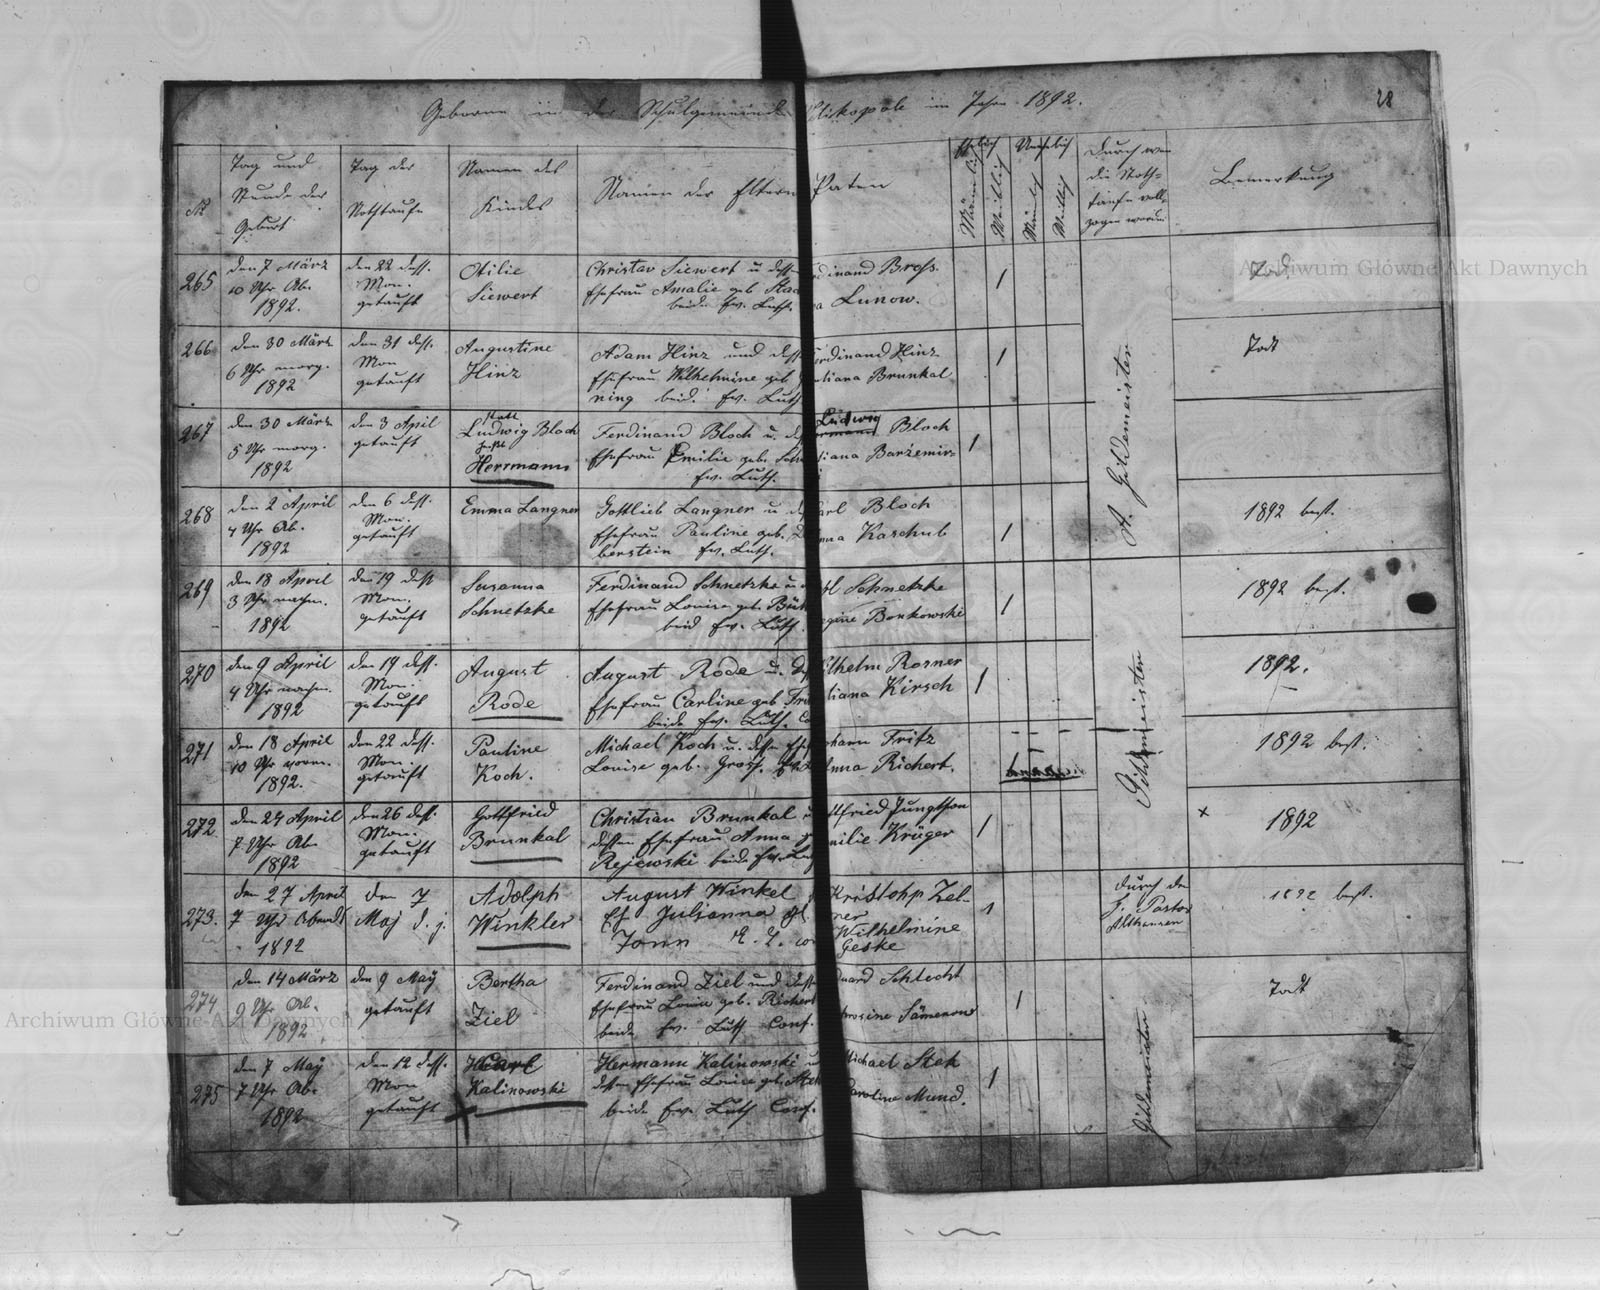 Geborne in der Schulgemeinde Wielkopole im Jahre 1892.
28
№
Tag und
Stunde der
Geburt
Tag der
Nothtaufe
Namen des
Kindes
Namen der Eltern
Paten
Ehelich
Unehelich
Männlich
Weiblich
Männlich
Weiblich
Durch wen
die Noth-
taufe voll-
zogen worden
Bemerkung
265
den 7 März
10 Uhr Ab.
1892.
den 22 dess.
Mon.
getauft
Otilie
Siewert
Christav Siewert u dessen
Ehefrau Amalie geb
beide Ev. Luth.
Ferdinand Bross.
Lunow.
1
Todt
266
den 30 März
6 Uhr morg.
1892
den 31 dess.
Mon
getauft
Augustine
Hinz
Adam Hinz und dess
Ehefrau Wilhelmine geb
ning beide Ev. Luth.
Ferdinand Hinz
Juliana Brunkal
1
Todt
267
den 30 März
5 Uhr morg.
1892
den 3 April
getauft
statt
Ludwig Bloch
heißt
Herrmann
Ferdinand Bloch u. des
Ehefrau Emilie geb.
Ev. Luth.
Ludwig
Bloch
1
268
den 2 April
4 Uhr Ab.
1892
den 6 dess.
Mon.
getauft
Emma Langner
Gottlieb Langner u des
Ehefrau Pauline geb.
berstein Ev. Luth.
Carl Bloch
Anna Kaschub
1
1892 best.
269
den 18 April
3 Uhr nachm.
1892
den 19 dess
Mon.
getauft
Susanna
Schnetzke
Ferdinand Schnetzke u
Ehefrau Louise geb.
beid Ev. Luth.
Schnetzke
Regine Bonkowski
1
1892 best.
270
den 9 April
4 Uhr nachm.
1892
den 19 dess.
Mon.
getauft
August
Rode
August Rode u. des
Ehefrau Carline geb
beide Ev. Luth. Co
Wilhelm Rosner
Juliana Kirsch
1
1892.
271
den 18 April
10 Uhr vorm.
1892.
den 22 dess.
Mon.
getauft
Pauline
Koch.
Michael Koch u. dessen Ehe
Louise geb. Gross.
Johann Fritz
Anna Richert.
1892 best.
272
den 24 April
7 Uhr Ab.
1892
den 26 dess.
Mon.
getauft
Gottfried
Brunkal
Christian Brunkal u
dessen Ehefrau Anna
Rejewski beide Ev. Lu
Gottfried
Emilie Krüger
1
×
1892
273.
den 27 April
7 Uhr Abends
1892
den 7
Maj d. j.
Adolph
Winkler
August Winkel
Eh Julianna
Jonn
Kristohp Zel-
ner
Wilhelmine
Geske
1
durch den
H. Pastor
1892 best.
274
den 14 März
9 Uhr Ab.
1892
den 9 May
getauft
Bertha
Ziel
Ferdinand Ziel und dessen
Ehefrau Louise geb. Richert
beide Ev. Luth Conf.
Eduard Schlecht
1
Todt
275
den 7 May
7 Uhr Ab.
1892
den 12 dess.
Mon
getauft
Carl
Kalinowski
Hermann Kalinowski u
dessen Ehefrau Louise geb. Stek
beide Ev. Luth Conf.
Michael Stek
Caroline Mund.
1
A. Gildemeister
Gildemeister
Gildemeister
Archiwum Główne Akt Dawnych
Archiwum Główne Akt Dawnych